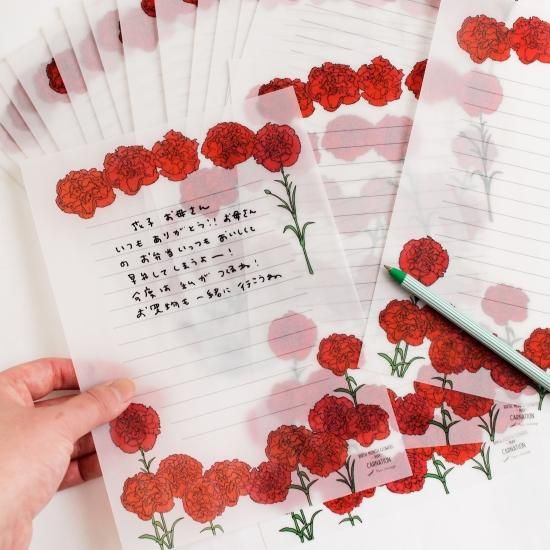 花子 お母さん
いつも ありがとう!! お母さん
の お弁当 いつも おいしくて
早弁してしまうよー!
今度は 私が つくるね!
お買物も 一緒に 行こうね
BIRTH MONTH FLOWERS
MAY
CARNATION